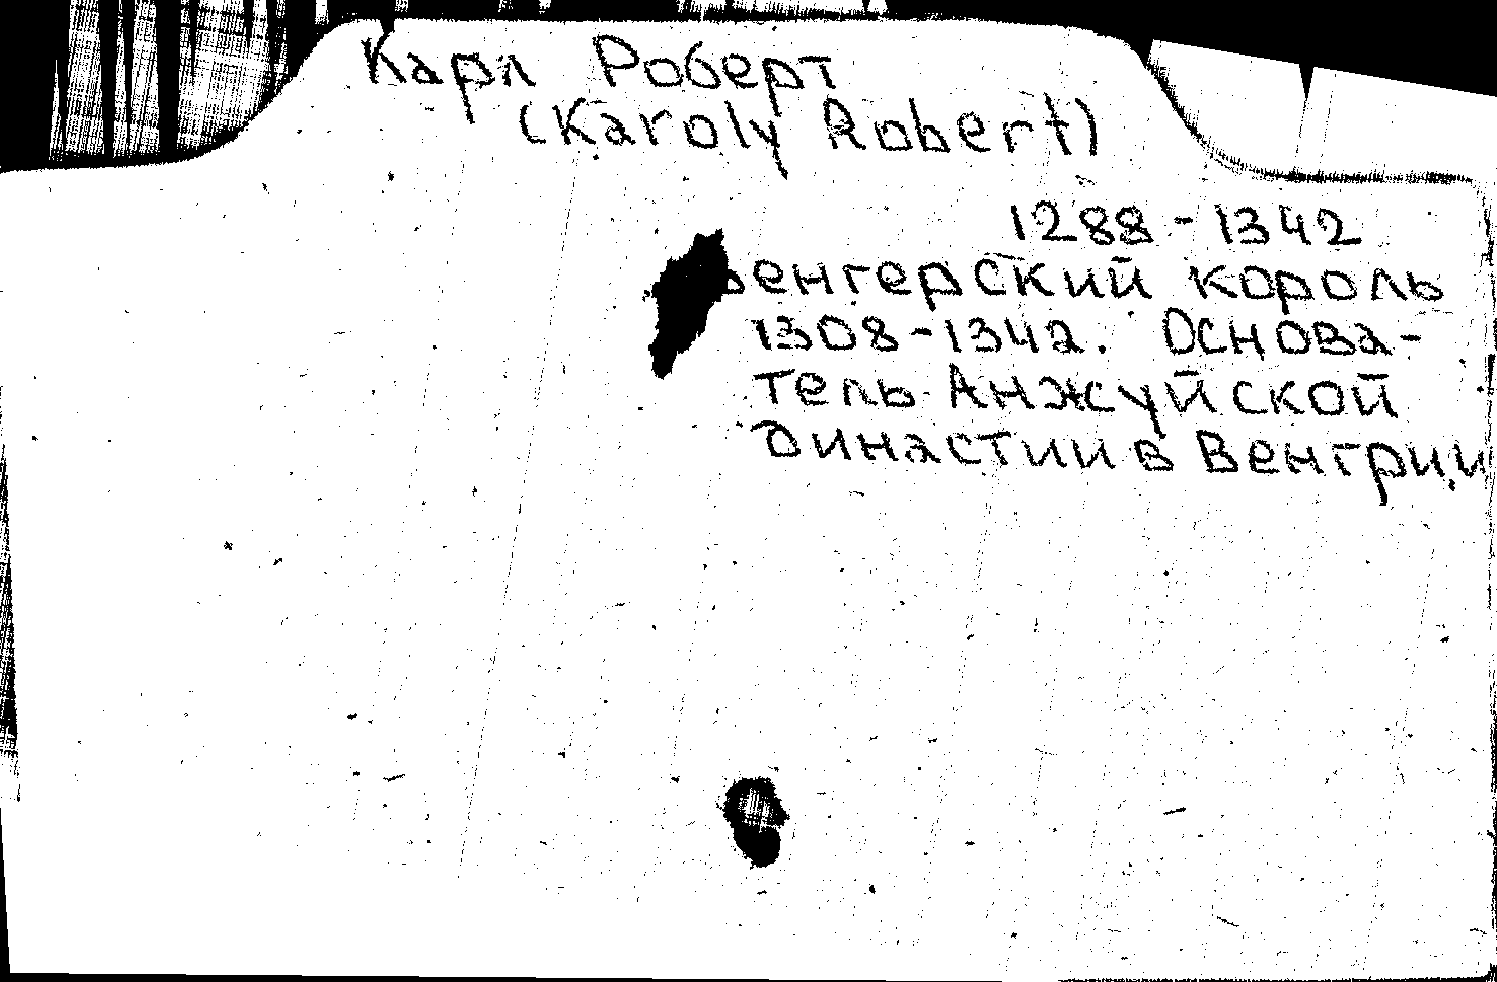 Карл Роберт
(Karoly Robert)
1288-1342
Венгерский король
1308-1342. Основа-
тель Анжуйской
династии в Венгрии